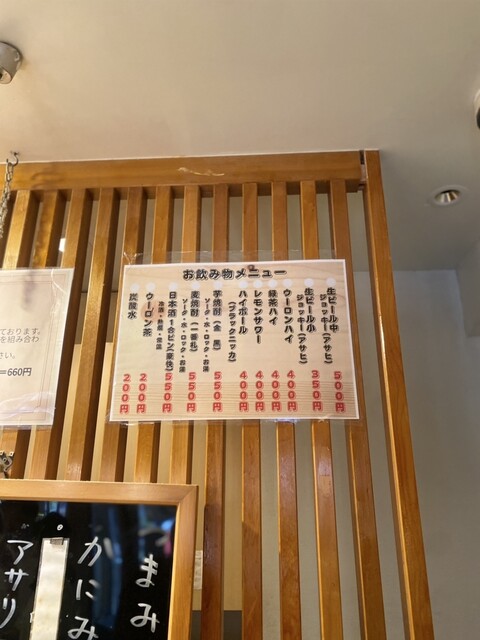 お飲み物メニュー
生ビール中
ジョッキー(アサヒ)
500円
生ビール小
ジョッキー(アサヒ)
350円
ウーロンハイ
400円
緑茶ハイ
400円
レモンサワー
400円
ハイボール
(ブラックニッカ)
400円
芋焼酎(金黒)
ソーダ・水・ロック・お湯
550円
麦焼酎(一番札)
ソーダ・水・ロック・お湯
550円
日本酒1合ビン(豪快)
冷酒・熱燗・常温
550円
ウーロン茶
200円
炭酸水
200円
ております。
を組み合わ
さい。
=660円
まみ
かにみ
アサリ